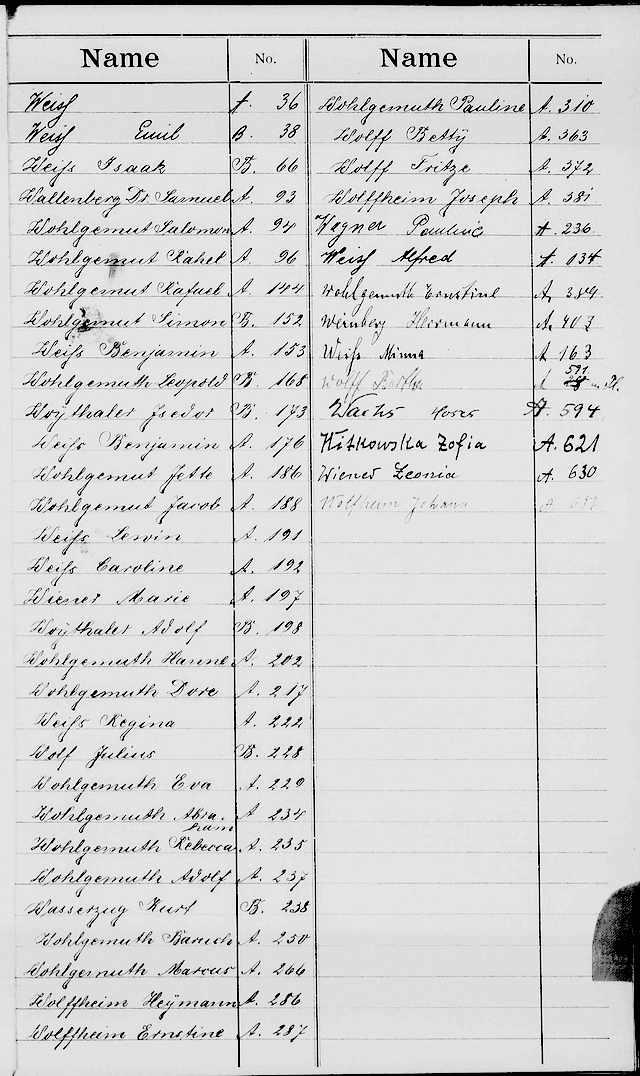 Name No.
Weiss A. 36
Weiss Emil B. 38
Weiss Isaak B. 66
Wallenberg Dr. Samuel A. 93
Wohlgemut Salomon A. 94
Wohlgemut Rahel A. 96
Wohlgemut Rafael A. 144
Wohlgemut Simon B. 152
Weiss Benjamin A. 153
Wohlgemuth Leopold B. 168
Woythaler Isidor B. 173
Weiss Benjamin A. 176
Wohlgemut Jette A. 186
Wohlgemut Jacob A. 188
Weiss Lewin A. 191
Weiss Caroline A. 192
Wiener Marie A. 197
Woythaler Adolf B. 198
Wohlgemuth Hanne A. 202
Wohlgemuth Dore A. 217
Weiss Regina A. 222
Wolf Julius B. 228
Wohlgemuth Eva A. 229
Wohlgemuth Abra- A 234
ham
Wohlgemuth Rebecca A. 235
Wohlgemuth Adolf A. 237
Wasserzug Kurt B. 238
Wohlgemuth Baruch A. 250
Wohlgemuth Marcus A. 266
Wolffheim Heymann A. 286
Wolffheim Ernstine A. 287
Name No.
Wohlgemuth Pauline A. 310
Wolff Betty A. 363
Wolff Fritze A. 372
Wolffheim Joseph A. 381
Wagner Pauline A. 236
Weiss Alfred A. 134
Wohlgemuth Ernstine A. 389
Weinberg Herrmann A. 403
Weiss Minna A 163
Wolff A 591
Wachs A. 594
Witkowska Zofia A. 621
Wiener Leonia A. 630
Wolfheim Johana A